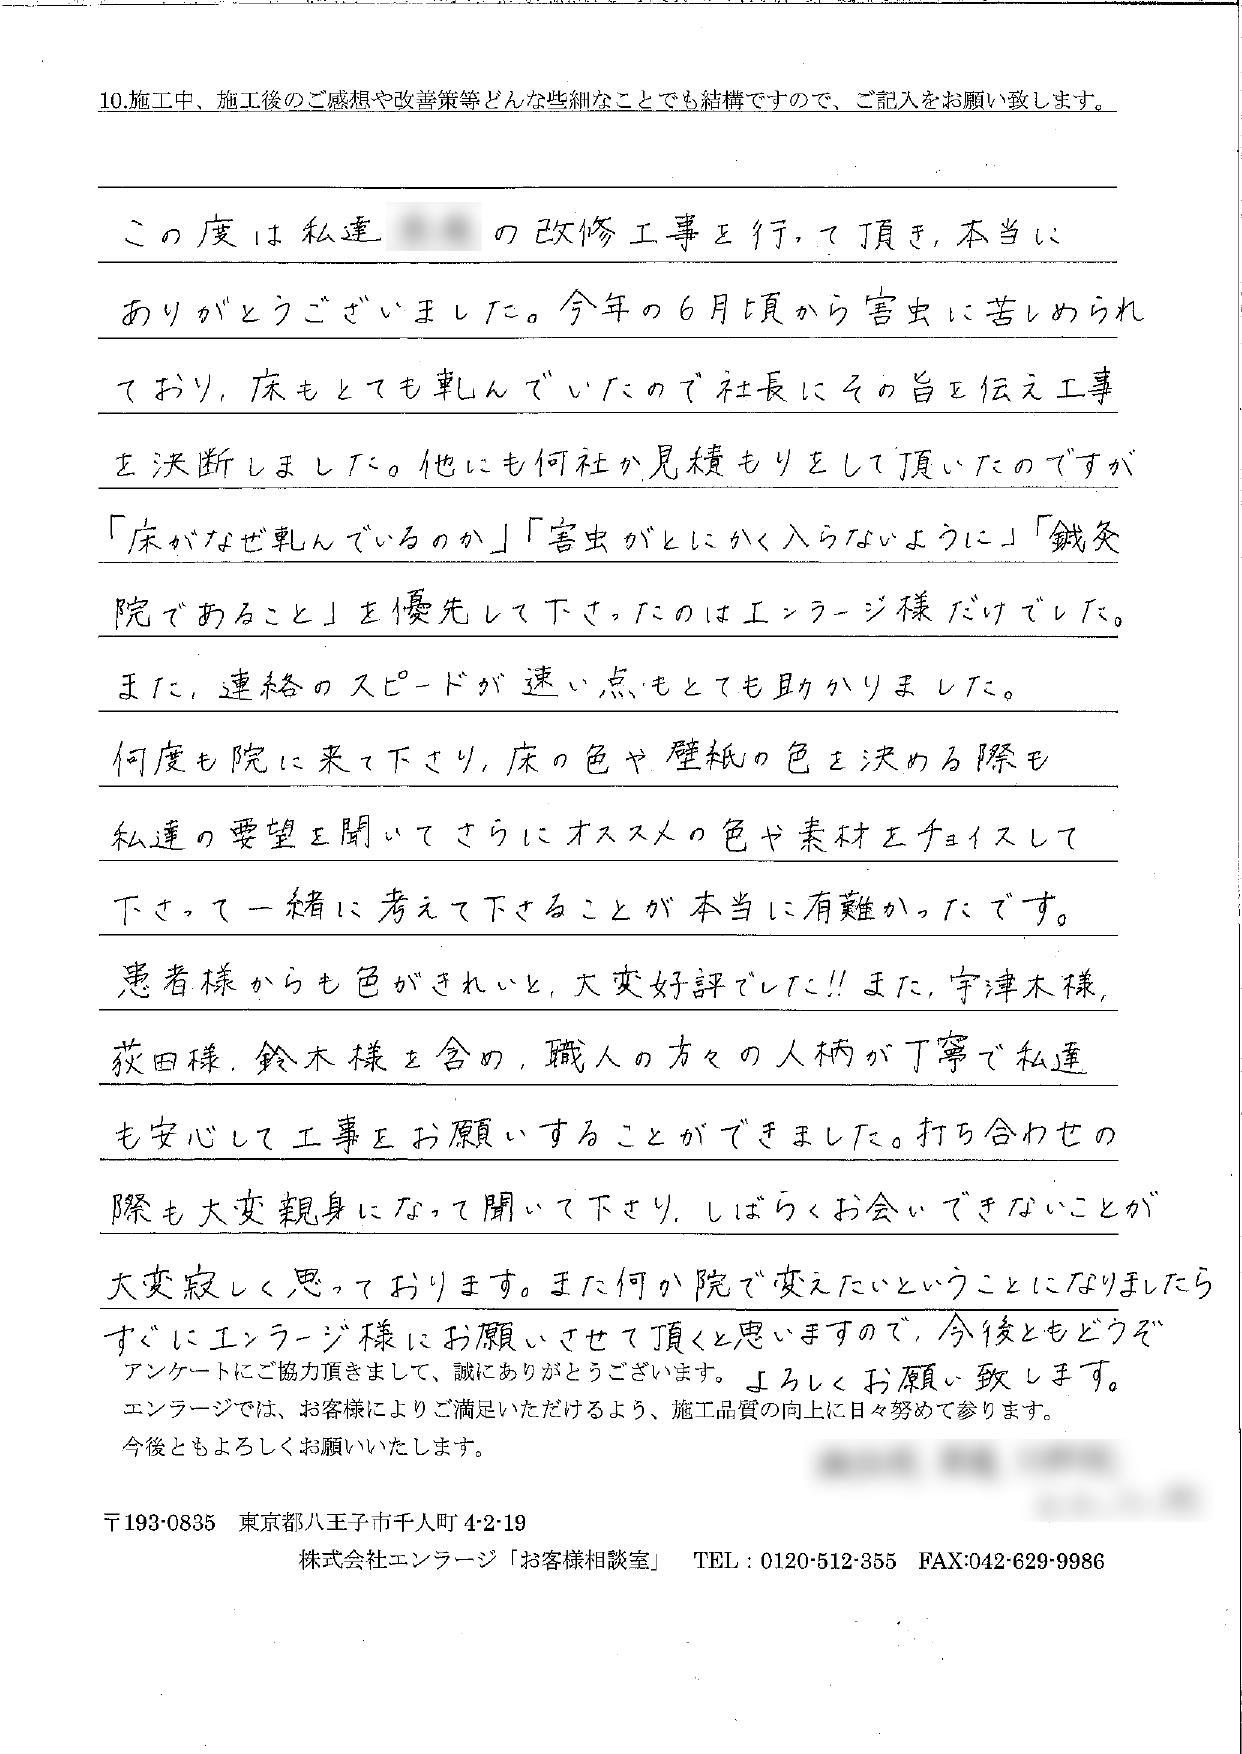 10.施工中、施工後のご感想や改善策等どんな些細なことでも結構ですので、ご記入をお願い致します。
この度は私達 の改修工事を行って頂き,本当に
ありがとうございました。今年の6月頃から害虫に苦しめられ
ており,床もとても軋んでいたので社長にその旨を伝え工事
を決断しました。他にも何社か見積もりをして頂いたのですが
「床がなぜ軋んでいるのか」「害虫がとにかく入らないように」「鍼灸
院であること」を優先して下さったのはエンラージ様だけでした。
また,連絡のスピードが速い点もとても助かりました。
何度も院に来て下さり,床の色や壁紙の色を決める際も
私達の要望を聞いてさらにオススメの色や素材をチョイスして
下さって一緒に考えて下さることが本当に有難かったです。
患者様からも色がきれいと,大変好評でした!!また,宇津木様,
荻田様,鈴木様を含め,職人の方々の人柄が丁寧で私達
も安心して工事をお願いすることができました。打ち合わせの
際も大変親身になって聞いて下さり,しばらくお会いできないことが
大変寂しく思っております。また何か院で変えたいということになりましたら
すぐにエンラージ様にお願いさせて頂くと思いますので,今後ともどうぞ
よろしくお願い致します。
アンケートにご協力頂きまして、誠にありがとうございます。
エンラージでは、お客様によりご満足いただけるよう、施工品質の向上に日々努めて参ります。
今後ともよろしくお願いいたします。
〒193-0835 東京都八王子市千人町 4-2-19
株式会社エンラージ「お客様相談室」 TEL：0120-512-355 FAX:042-629-9986